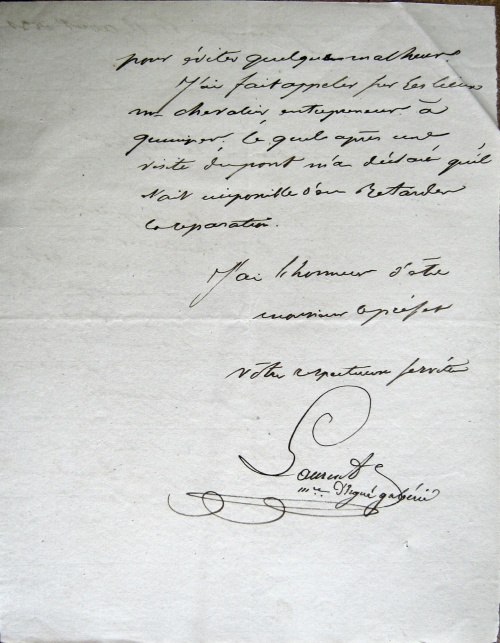 pour éviter quelques malheurs.
J'ai fait appeler sur les lieux
mr chevalier entrepreneur à
quimper. lequel après une
visite du pont m'a déclaré qu'il
était impossible d'en Retarder
la reparation.
J'ai l'honneur d'être
monsieur le préfet
vôtre respectueux servite
Laurent
mre d'Ergué gabéric